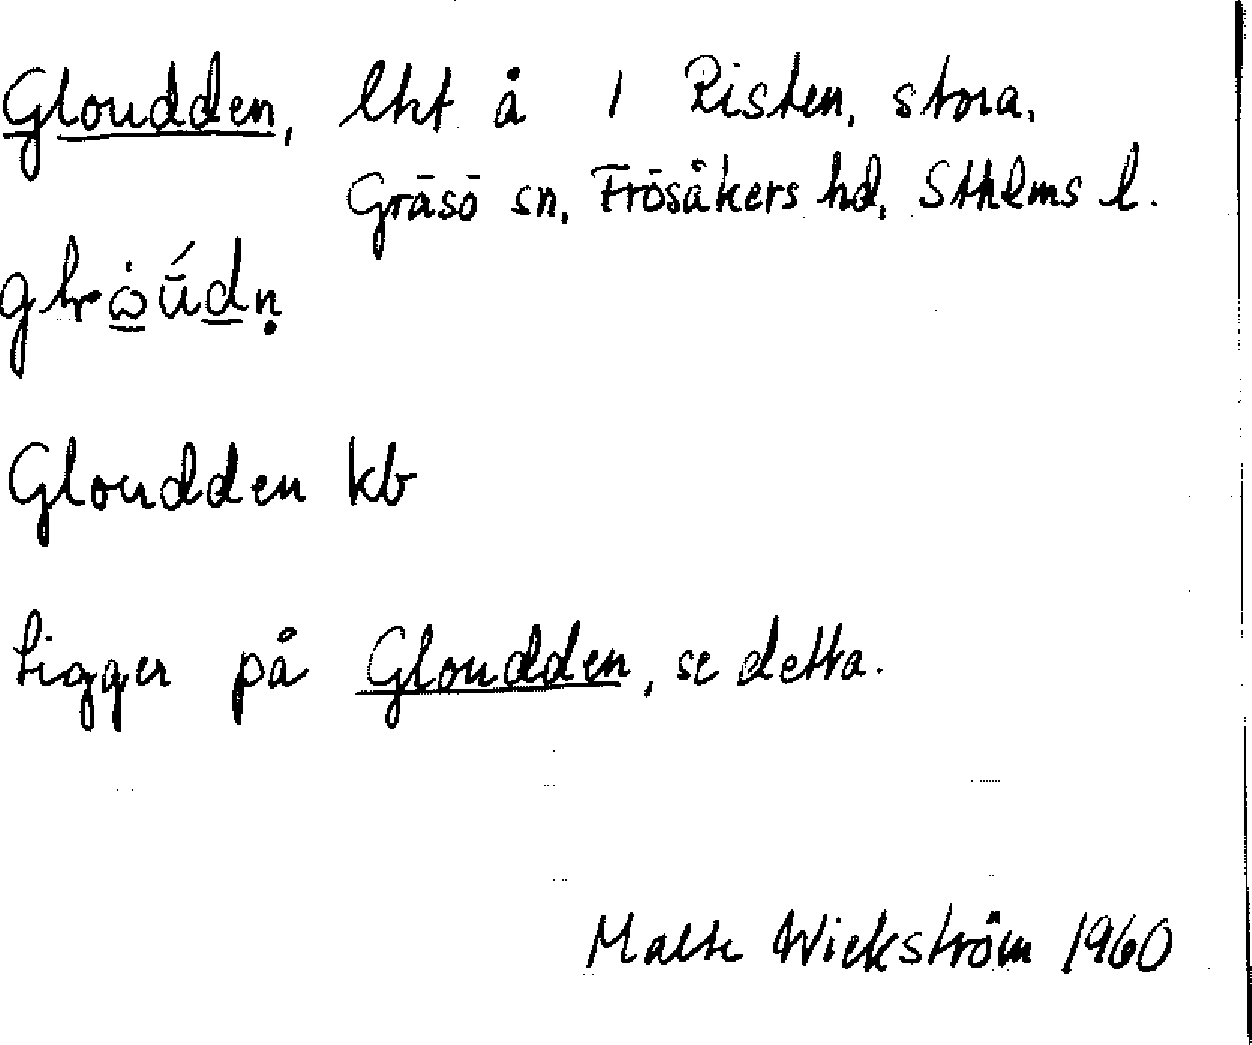 Gloudden, lht å 1 Risten, stora,
Gräsö sn, Frösåkers hd, Sthlms l.
Gloudden kb
Ligger på Gloudden, se detta.
Malte Wickström 1960